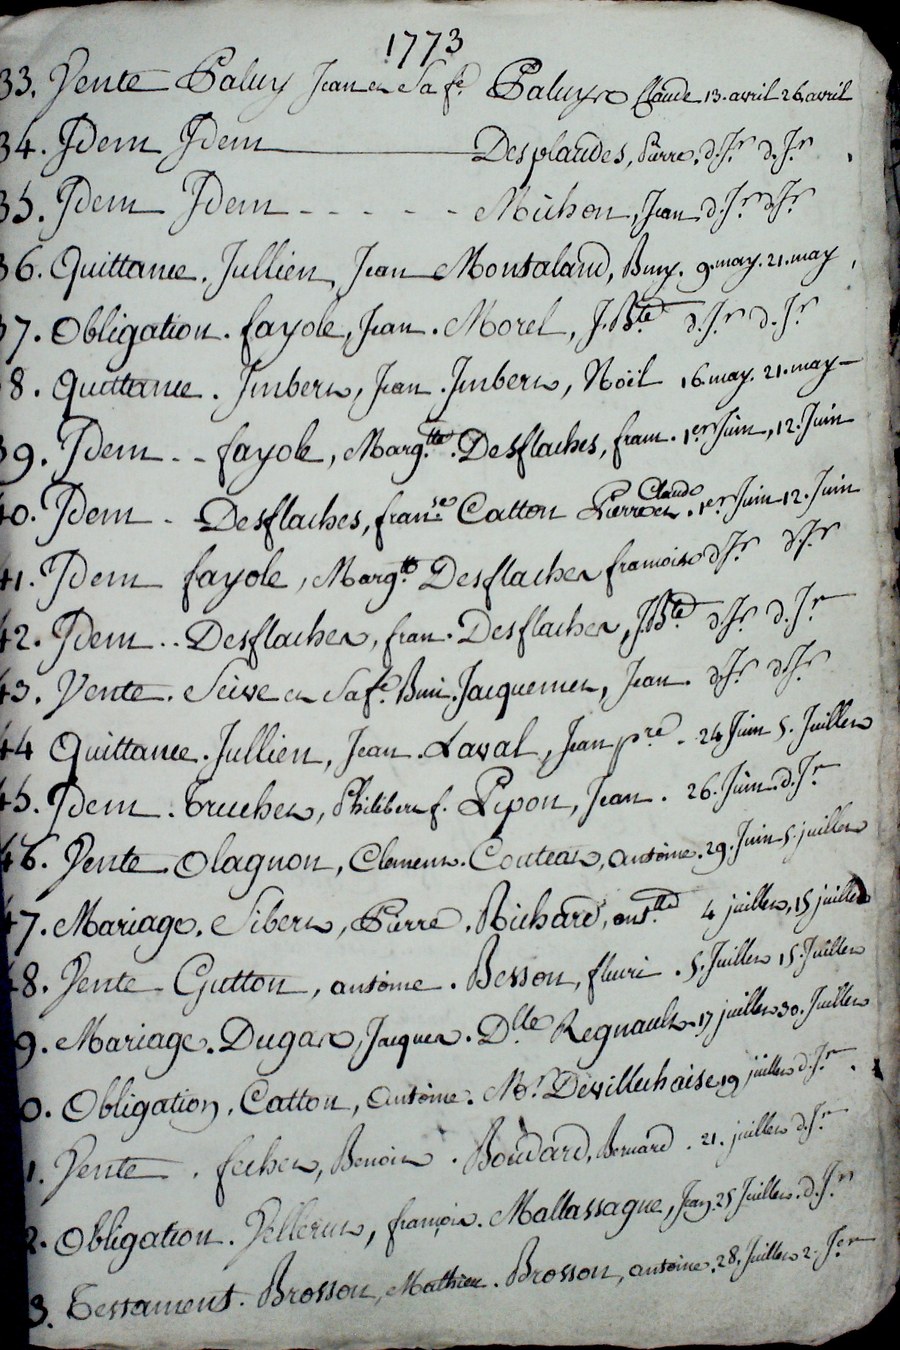 1773
33. Vente Paluy Jean et Sa fe. Paluy Claude 13. avril 26 avril
34. Idem Idem Desplaudes, Pierre. d. Jr d. Jr
35. Idem Idem - - - - - Michon, Jean d. Jr d. Jr
36. Quittance. Jullien, Jean Montaland, Bmy. 9. may. 21. may
37. Obligation. fayole, Jean. Morel, J. Bte d. Jr d. Jr
8. Quittance. Imbert, Jean. Imbert, Noël 16. may. 21. may
39. Idem - - fayole, Margtte. Desflaches, fran. 1er Juin, 12. Juin
40. Idem - Desflaches, franse Catton Pierre et Claude. 1er Juin 12. Juin
41. Idem fayole, Margtte Desflaches francoise d. Jr d. Jr
42. Idem .. Desflaches, fran. Desflaches, J. Bte d. Jr d. Jr
43. Vente. Seive et Sa fe. Jacquemet, Jean. d. Jr d. Jr
44 Quittance. Jullien, Jean. Laval, Jean pre. 24 Juin 5. Juillet
45. Idem. Truchet, Philibert f. Pipon, Jean. 26. Juin. d. Jr
46. Vente. Olagnon, Clement. Couteau, antoine. 29. Juin 5. juillet
47. Mariage. Sibert, Pierre. Richard, 4 juillet, 15 juillet
48. Vente Gutton, antoine. Besson, fleuri. 5. Juillet 15. Juillet
9. Mariage. Dugas, Jacques. Dlle Regnault. 17 juillet 30. Juillet
0. Obligation. Catton, Antoine. Mr. Devillechaise 19 juillet d. Jr.
1. Vente. fechet, Benoit. Boudard, Bernard. 21. juillet d. Jr
2. Obligation. Pellerin, françois. Mallassagne, Jean. 25 Juillet. d. Jr
3. Testament. Brosson, Mathieu. Brosson, antoine. 28. Juillet 2. Jer